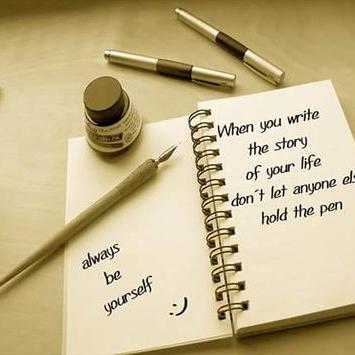 always
be
yourself
:-)
When you write
the story
of your life
don´t let anyone els
hold the pen